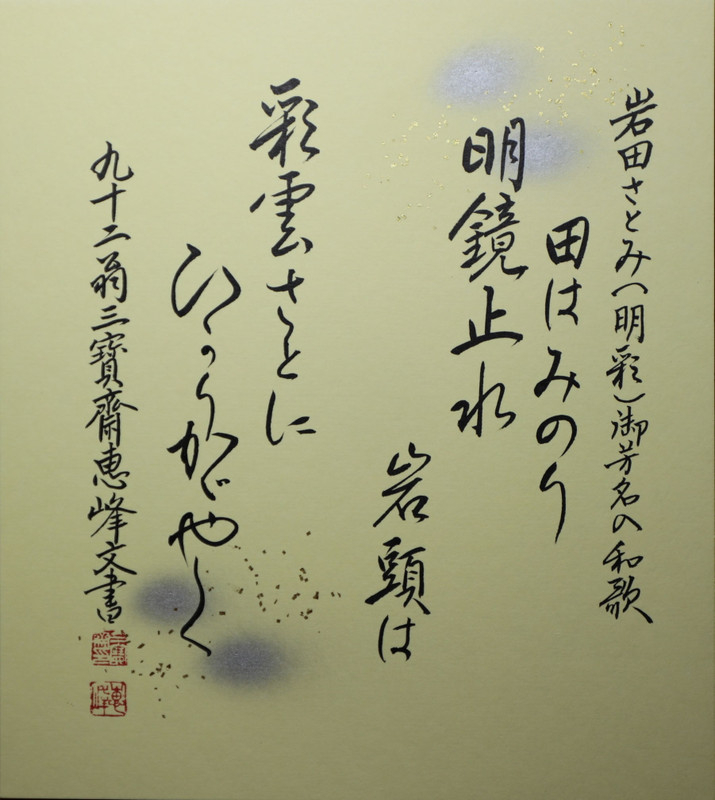 岩田さとみ(明彩)御芳名の和歌
田はみのり
明鏡止水
岩頭は
彩雲さとに
ひかりかゞやく
九十二翁三寶齋恵峰文書